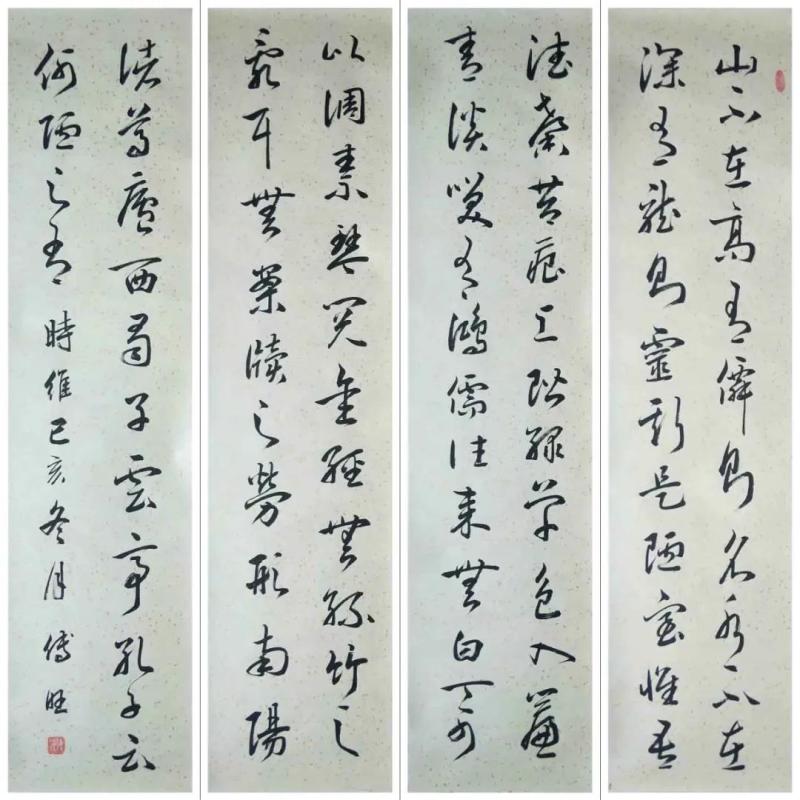 山不在高有僊則名水不在
深有龍則靈斯是陋室惟吾
德馨苔痕上階緑草色入簾
青談笑有鴻儒往来無白丁可
以調素琴閲金經無絲竹之
亂耳無案牘之勞形南陽
諸葛廬西蜀子雲亭孔子云
何陋之有 時維己亥冬月 傅旺